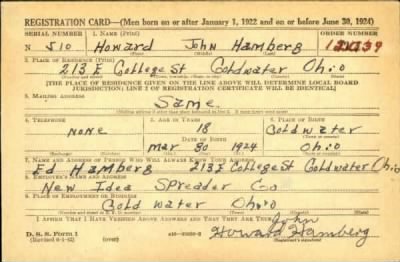 REGISTRATION CARD—(Men born on or after January 1, 1922 and on or before June 30, 1924)
SERIAL NUMBER 1. NAME (Print) ORDER NUMBER
N 510 Howard John Hamberg
2. PLACE OF RESIDENCE (Print)
213 E College St Coldwater Ohio
[THE PLACE OF RESIDENCE GIVEN ON THE LINE ABOVE WILL DETERMINE LOCAL BOARD
JURISDICTION; LINE 2 OF REGISTRATION CERTIFICATE WILL BE IDENTICAL]
3. MAILING ADDRESS
Same
4. TELEPHONE 5. AGE IN YEARS 6. PLACE OF BIRTH
None 18 Coldwater
DATE OF BIRTH
Mar 30 1924 Ohio
7. NAME AND ADDRESS OF PERSON WHO WILL ALWAYS KNOW YOUR ADDRESS
Ed Hamberg 213 E College St Coldwater Ohio
8. EMPLOYER'S NAME AND ADDRESS
New Idea Spreader Co
9. PLACE OF EMPLOYMENT OR BUSINESS
Cold water Ohio
I AFFIRM THAT I HAVE VERIFIED ABOVE ANSWERS AND THAT THEY ARE TRUE.
John
D. S. S. Form 1 Howard Hamberg
(Revised 6-1-42) (over) (Registrant's signature)